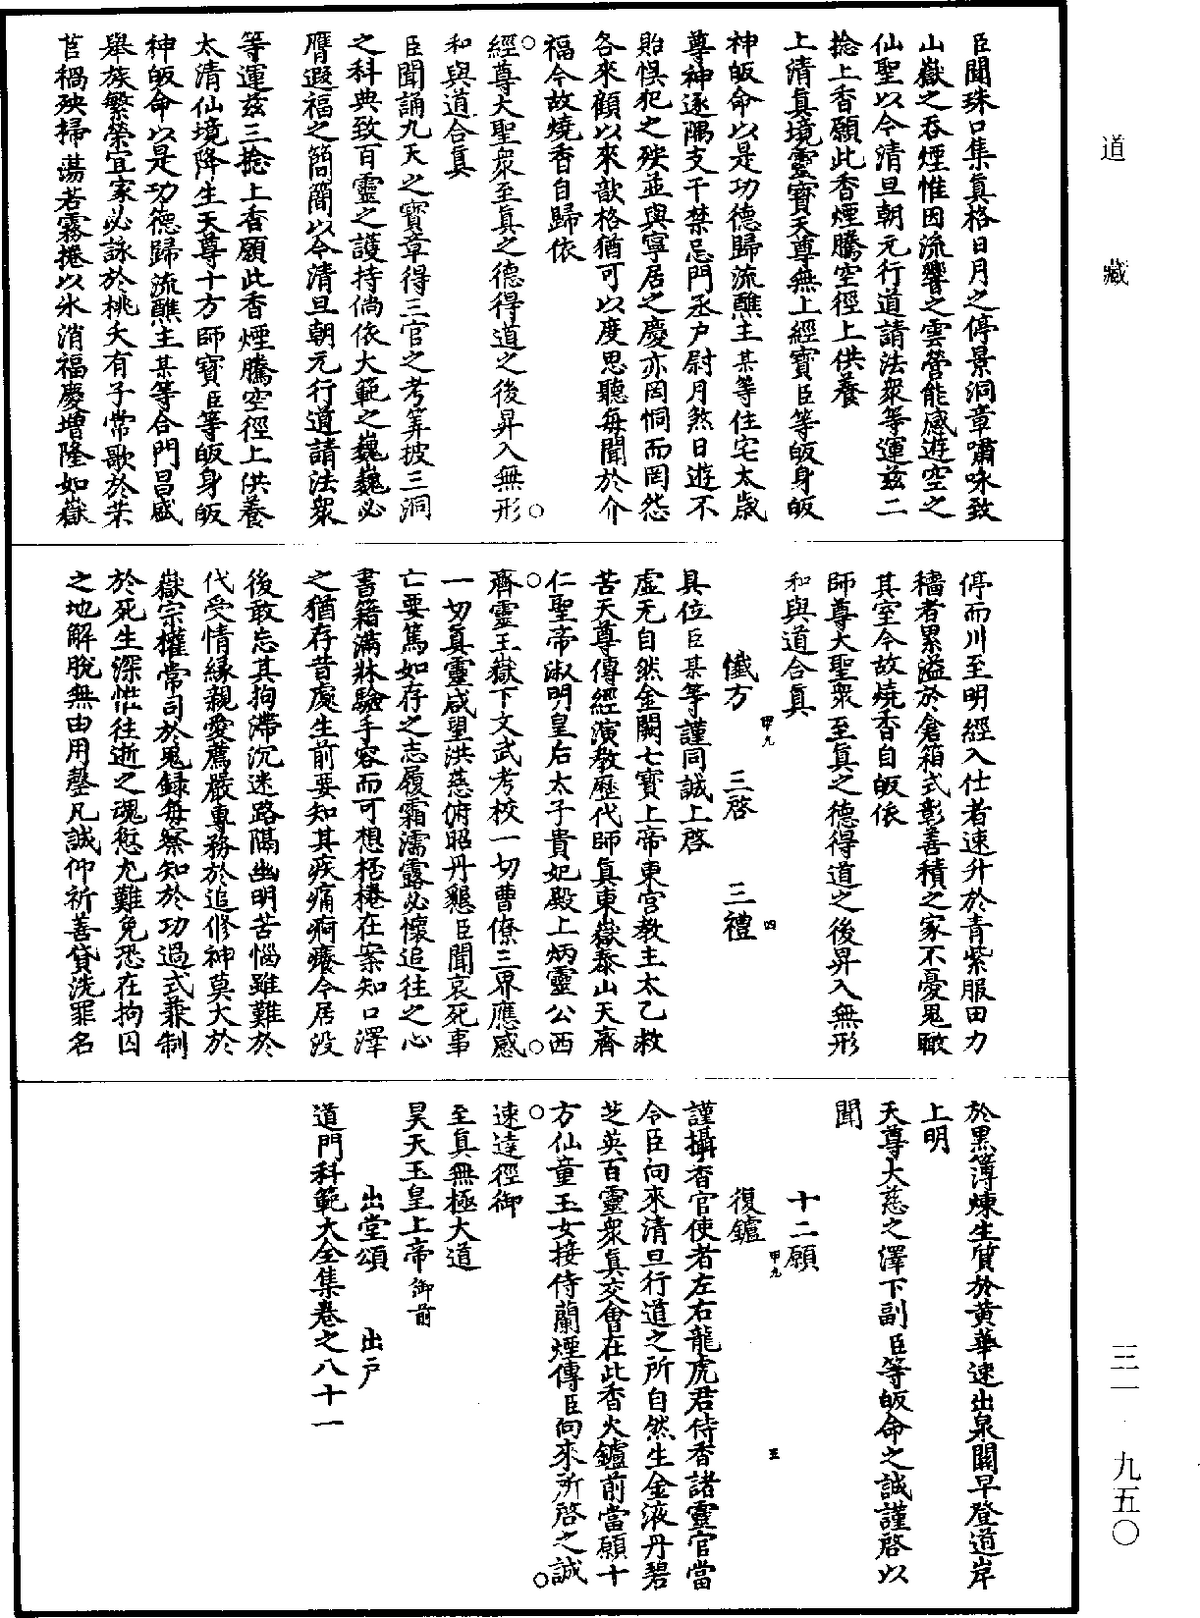 道藏
三一 九五〇
臣聞珠口集真格日月之停景洞章嘯咏致
山嶽之吞煙惟因流響之雲營能感遊空之
仙聖以今清旦朝元行道請法眾等運茲二
捻上香願此香煙騰空徑上供養
上清真境靈寶天尊無上經寶臣等皈身皈
神皈命以是功德歸流醮主某等住宅太歲
尊神逐隅支干禁忌門丞户尉月煞日遊不
貽惧犯之殃並與寧居之慶亦罔恫而罔怨
各來顧以來歆格猶可以度思聽每聞於介
福今故燒香自歸依
經尊大聖眾至真之德得道之後昇入無形
和與道合真
臣聞誦九天之寶章得三官之考筭披三洞
之科典致百靈之護持倘依大範之巍巍必
膺遐福之簡簡以今清旦朝元行道請法眾
等運茲三捻上香願此香煙騰空徑上供養
太清仙境降生天尊十方師寶臣等皈身皈
神皈命以是功德歸流醮主某等合門昌盛
舉族繁榮宜家必詠於桃夭有子常歌於芣
苢禍殃掃蕩若霧捲以氷消福慶增隆如嶽
停而川至明經入仕者速升於青紫服田力
穡者累溢於倉箱式彰善積之家不憂鬼瞰
其室今故燒香自皈依
師尊大聖眾至真之德得道之後昇入無形
和與道合真
甲九 四
懺方 三啓 三禮
具位臣某等謹同誠上啓
虛无自然金闕七寶上帝東宮教主太乙救
苦天尊傳經演教歷代師真東嶽泰山天齊
仁聖帝淑明皇后太子貴妃殿上炳靈公西
齊靈王嶽下文武考校一切曹僚三界應感
一切真靈咸望洪慈俯昭丹懇臣聞哀死事
亡要篤如存之志履霜濡露必懷追往之心
書籍滿牀驗手容而可想桮棬在案知口澤
之猶存昔處生前要知其疾痛痾癢今居没
後敢忘其拘滯沉迷路隔幽明苦惱雖難於
代受情緣親愛薦嚴專務於追修神莫大於
嶽宗權常司於鬼録每察知於功過式兼制
於死生深惟往逝之魂愆尤難免恐在拘囚
之地解脫無由用罄凡誠仰祈善貸洗罪名
於黑簿煉生質於黃華速出泉關早登道岸
上明
天尊大慈之澤下副臣等皈命之誠謹啓以
聞
十二願
甲九 五
復鑪
謹攝香官使者左右龍虎君侍香諸靈官當
令臣向來清旦行道之所自然生金液丹碧
芝英百靈眾真交會在此香火鑪前當願十
方仙童玉女接侍蘭煙傳臣向來所啓之誠
速達徑御
至真無極大道
昊天玉皇上帝御前
出堂頌 出户
道門科範大全集卷之八十一